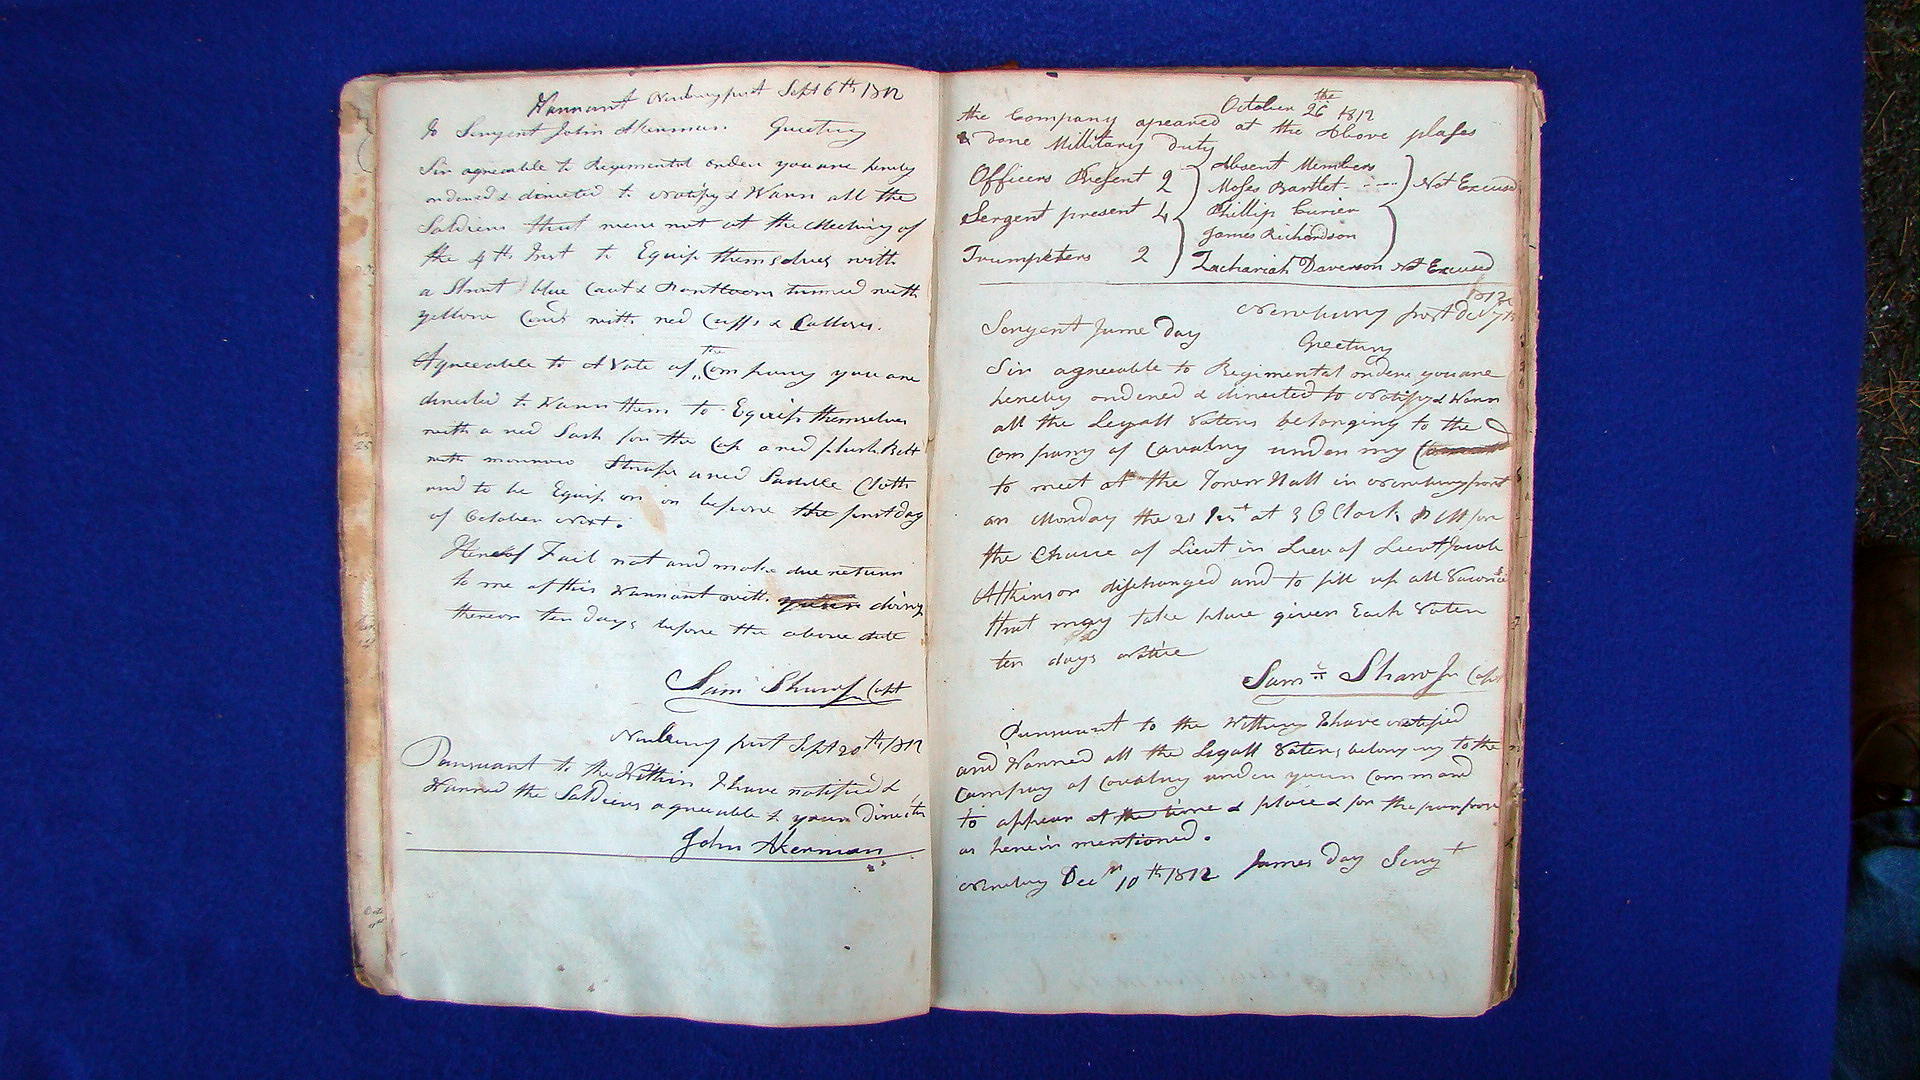 Warrant Newburyport Sept 6th 1812
To Sergent John Akerman Greeting
Sir agreeable to Regimental orders you are hereby
ordered & directed to Notify & Warn all the
Soldiers that were not at the Meeting of
the 4th Inst to Equip themselves with
a Short blue Coat & Pantloons trimed with
yellow Cord with red Cuffs & Collers.
Agreeable to A Vote of the Company you are
directed to Warn them to Equip themselves
with a red Sash for the Cap a red plush Belt
with morroco Straps a red Saddle Cloth
and to be Equip on or before the first day
of October Next.
Hereof Fail not and make due return
to me of this Warrant with doing
thereon ten days before the above date
Sam Shaw Jr Capt
Newbury port Sept 20th 1812
Pursuant to the Within I have notified &
Warned the Soldiers agreeable to your Direction
John Akerman
October the 26 1812
the Company apeared at the Above plases
& done Millitary duty
Officers Present 2
Sergent present 4
Trumpeters 2
Absent Members
Moses Bartlet - --- Not Excused
Phillip Curier
James Richardson
Zachariah Daverson Not Excused
1812
Newbury port Dec 7th
Sergent Jame Day
Greeting
Sir agreeable to Regimental orders you are
hereby ordered & directed to Notify & Warn
all the Legall Voters belonging to the
Company of Cavalry under my
to meet at the Town Hall in Newburyport
on Monday the 21 Inst at 3 O Clock P M for
the Choice of Lieut in Liev of Lieut Jacob
Atkinson discharged and to fill up all
that may take place given Each Voter
ten days Notice
Saml Shaw Jr Capt
Pursuant to the Withing I have notified
and Warned all the Legall Voters belonging to the
Company of Covalry under your Command
to appear at the time & place & for the purpose
as herein mentioned.
Newbury Decr 10th 1812 James Day Sergt